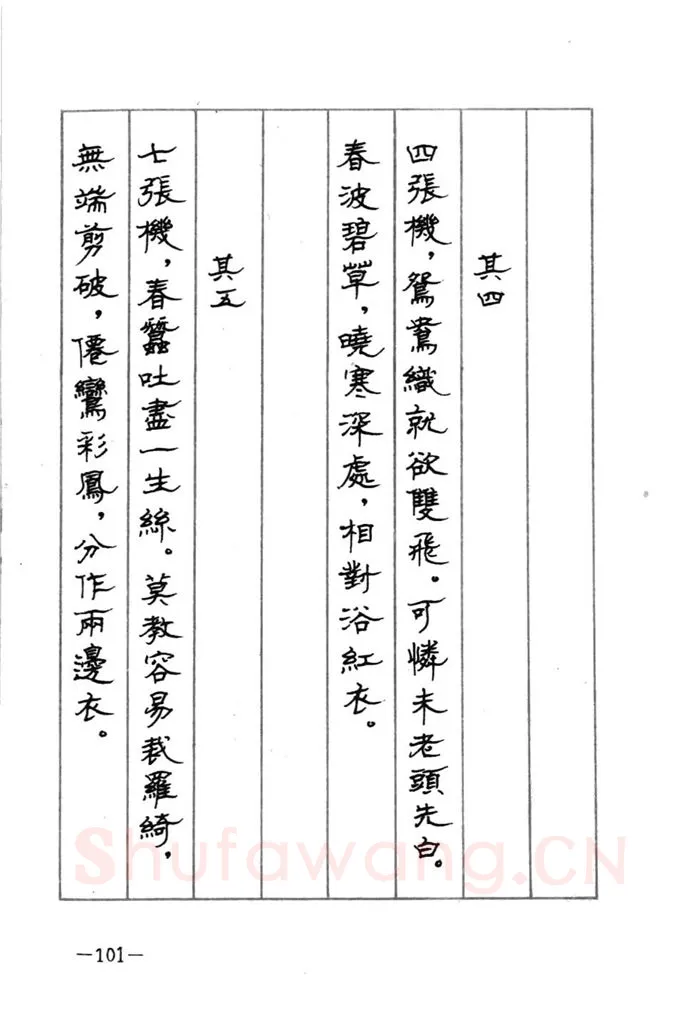 其四
四張機，鴛鴦織就欲雙飛。可憐未老頭先白。
春波碧草，曉寒深處，相對浴紅衣。
其五
七張機，春蠶吐盡一生絲。莫教容易裁羅綺，
無端剪破，僊鸞彩鳳，分作兩邊衣。
Shufawang.CN
—101—